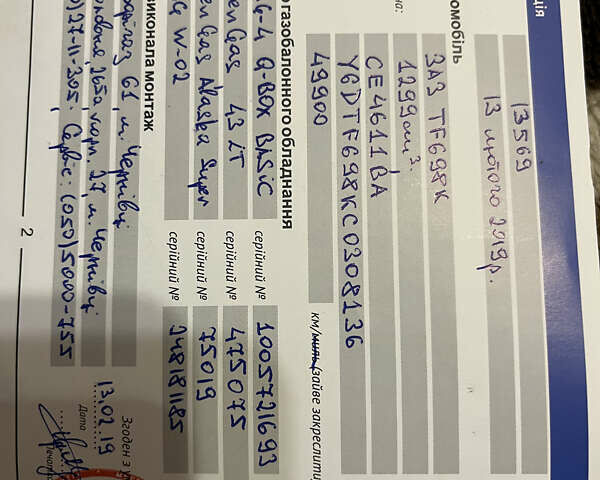 ція
13569
13 лютого 2019р.
омобіль
ЗАЗ TF698K
на:
1299 см³.
СЕ4611ВА
Y6DTF698KC0308136
49900 км/миль (зайве закреслити
газобалонного обладнання
G-4 Q-BOX BASiC серійний № 1005721693
GAS 43 LT серійний № 475075
Gas Alaska Super серійний № 75019
W-02 серійний № 248181185
виконала монтаж
61, м. Чернівці
265а, 27 м. Чернівці
27-11-305, Сервіс: (050)5000-755
Згоден з
13.02.19
Дата
2